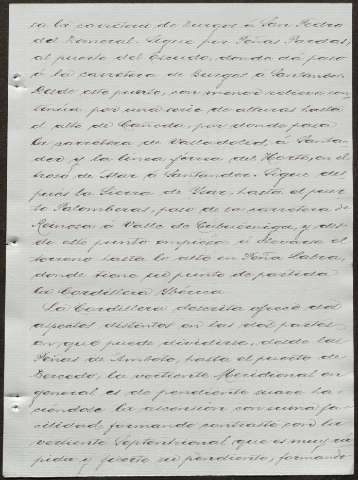 sa la carretera de Burgos á San Pedro
del Romeral. Sigue por Peñas Pardas,
al puerto del Escudo, donde da paso
á la carretera de Burgos á Santander.
Desde este puerto, con menor relieve con
por una serie de alturas hasta
el alto de Cañeda, por donde pasa
la carretera de Valladolid, á Santan-
der y la línea férrea del Norte, en el
trozo de Alar á Santander. Sigue des-
pués la Sierra de Isar, hasta el puer-
to Palombera, paso de la carretera de
Reinosa á Valle de Cabuérniga, y des-
de este punto empieza á elevarse el
terreno hasta lo alto en Peña Labra,
donde tiene su punto de partida
la Cordillera Ibérica.
La Cordillera descrita ofrece dos
aspectos distintos en las dos partes
en que puede dividirse, desde las
Peñas de Amboto, hasta el puerto de
Cercedo, la vertiente Meridional en
general es de pendiente suave ha-
ciéndose la ascensión con suma fa-
cilidad, formando contraste con la
vertiente Septentrional que es muy rá-
pida y fuerte su pendiente, formando